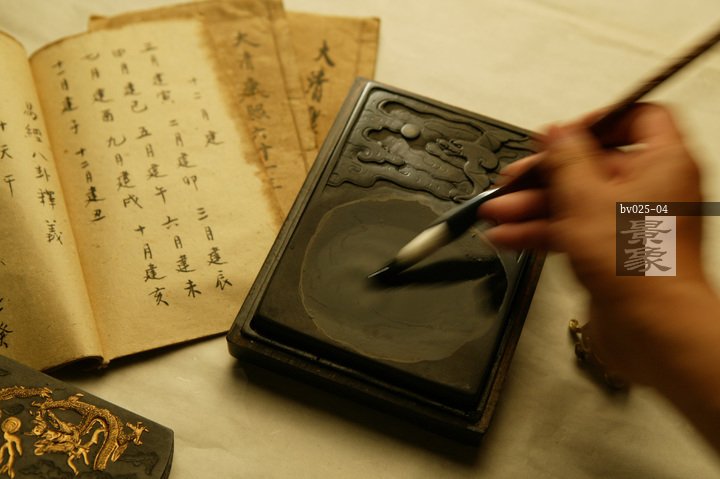 大清
大清康熙六十二
十二月建
正月建寅 二月建卯 三月建辰
四月建巳 五月建午 六月建未
七月建酉 九月建戌 十月建亥
十一月建子 十二月建丑
易經八卦釋義
十天干
癸
bv025-04
景象